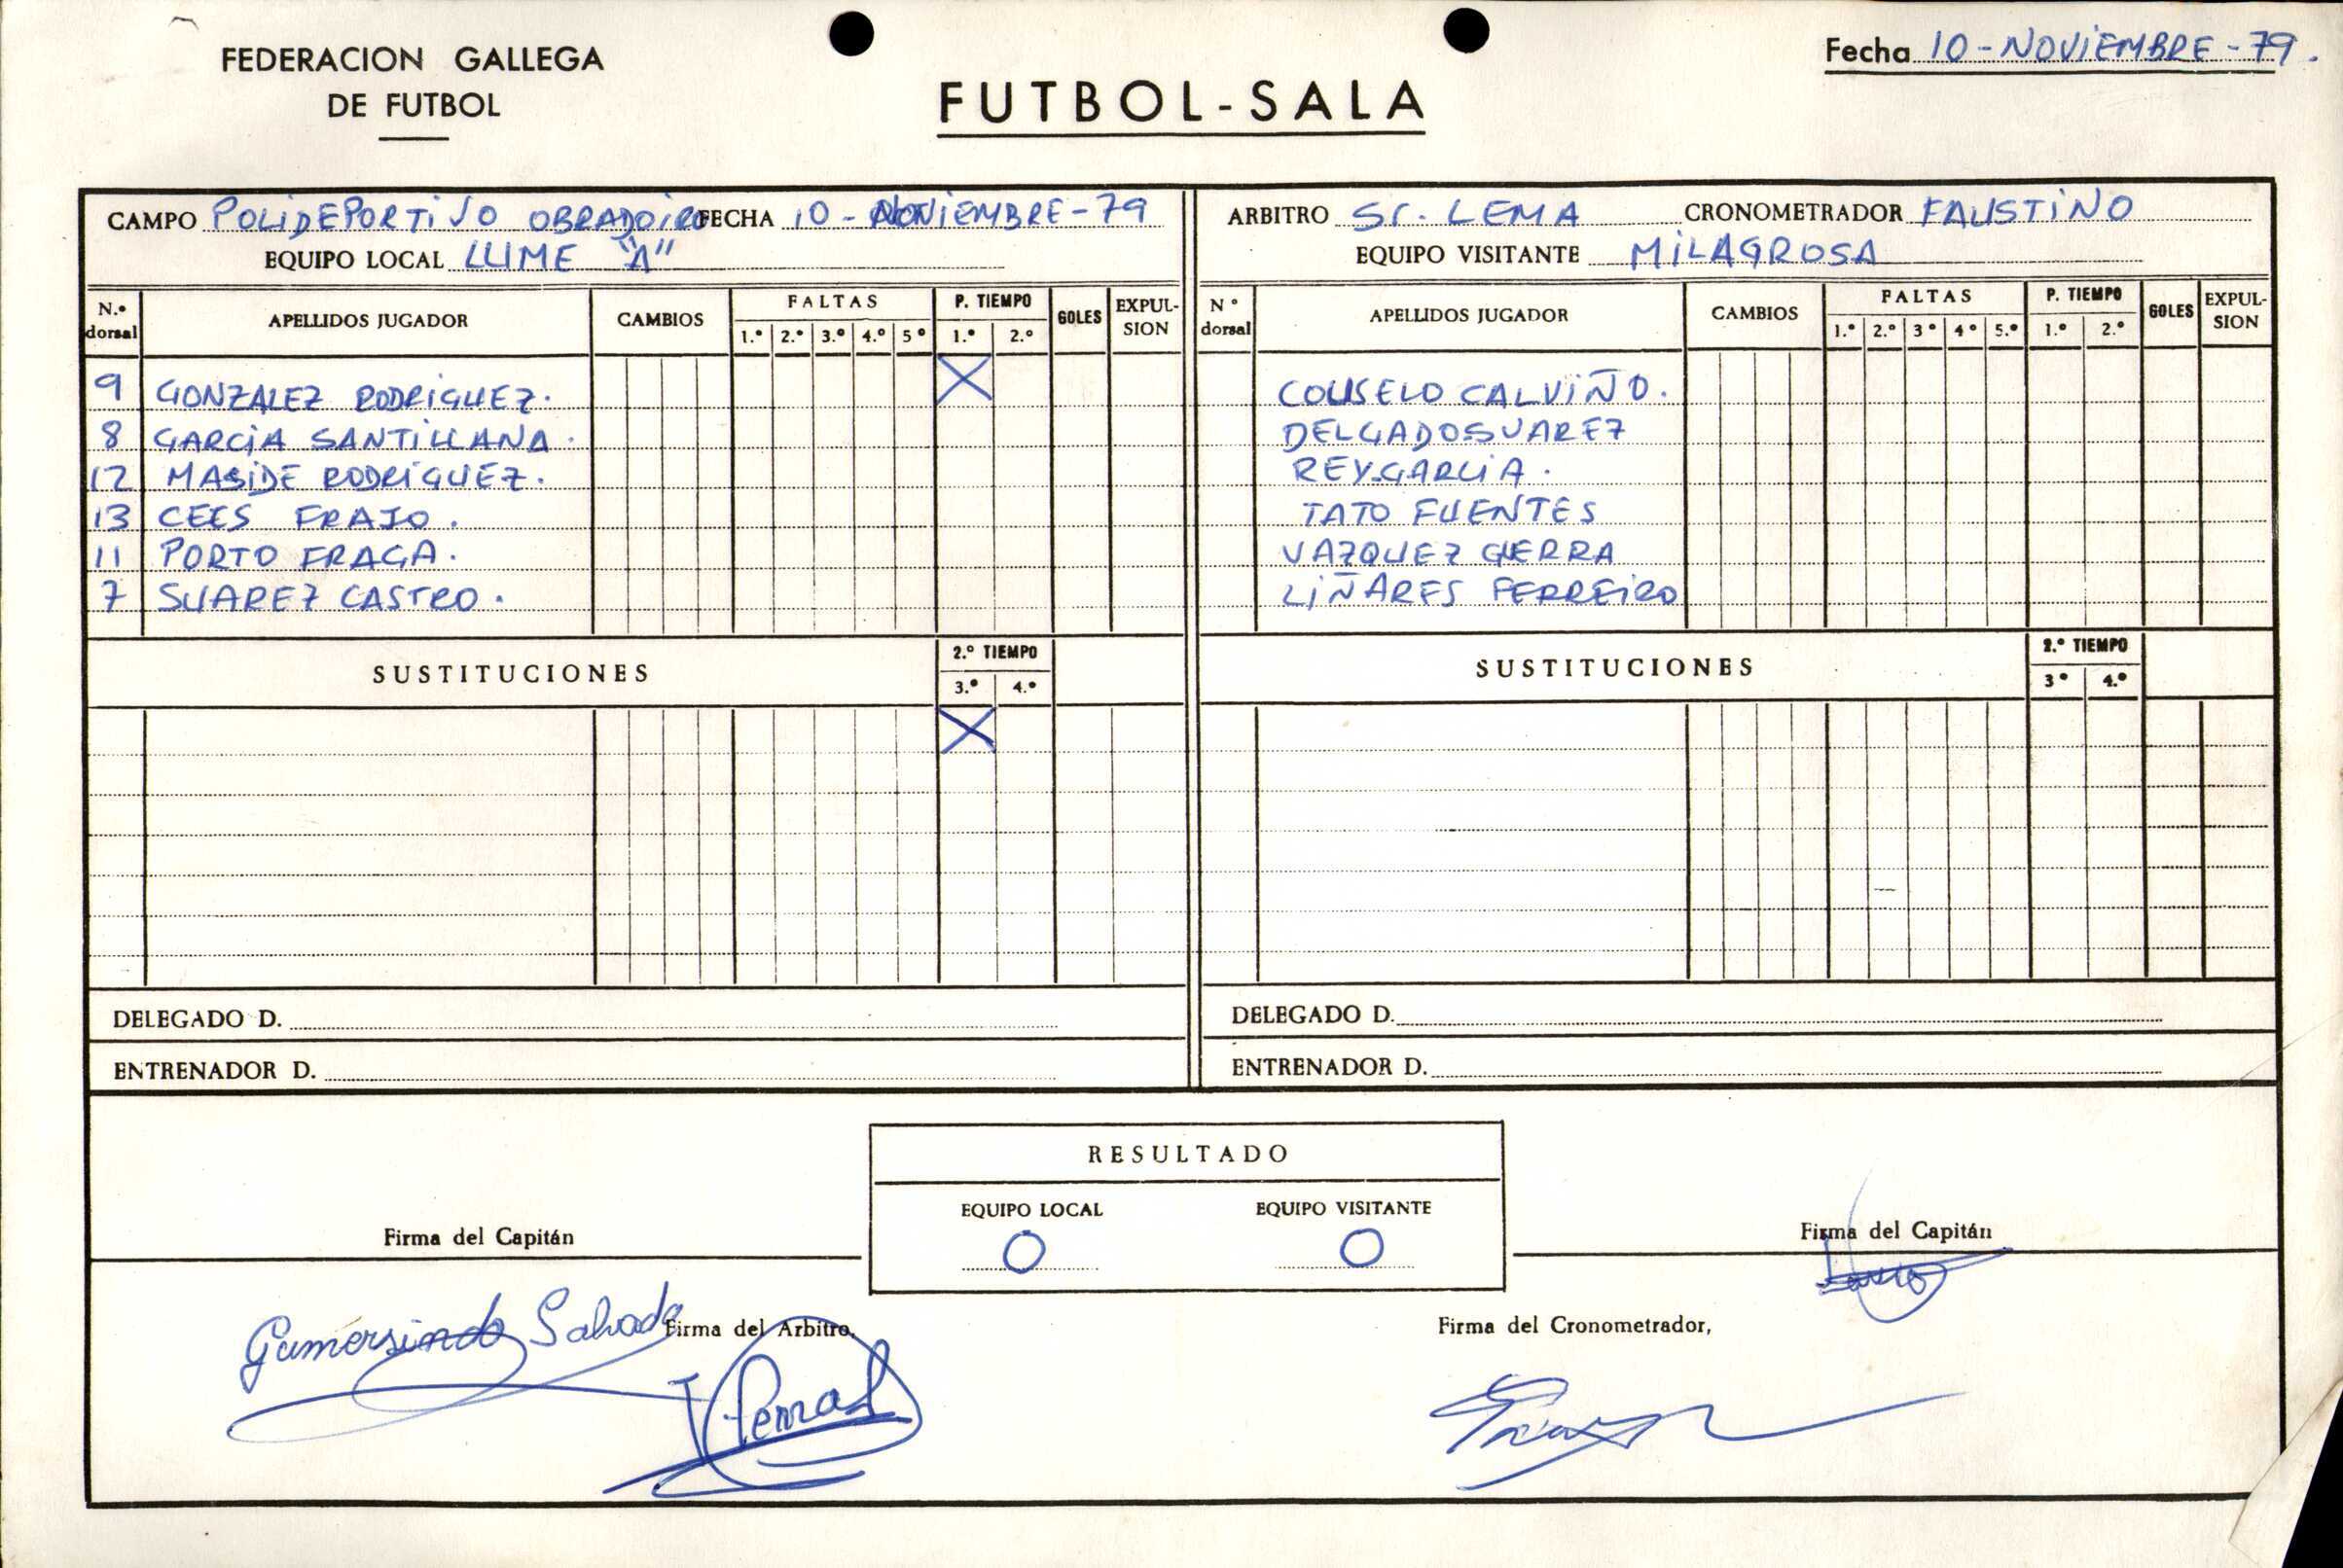 FEDERACION GALLEGA
DE FUTBOL
FUTBOL-SALA
Fecha 10-NOVIEMBRE-79.
CAMPO POLIDEPORTIVO OBRADOIRO FECHA 10-NOVIEMBRE-79
EQUIPO LOCAL LUME "A"
ARBITRO Sr. LEMA CRONOMETRADOR FAUSTINO
EQUIPO VISITANTE MILAGROSA
N.º dorsal APELLIDOS JUGADOR CAMBIOS FALTAS 1.º 2.º 3.º 4.º 5º P. TIEMPO 1.º 2.º GOLES EXPULSION
9 GONZALEZ RODRIGUEZ. X
8 GARCIA SANTILLANA.
12 MASIDE RODRIGUEZ.
13 CEES FRAJO.
11 PORTO FRAGA.
7 SUAREZ CASTRO.
SUSTITUCIONES 2.º TIEMPO 3.º 4.º
X
DELEGADO D.
ENTRENADOR D.
N º dorsal APELLIDOS JUGADOR CAMBIOS FALTAS 1.º 2.º 3º 4º 5.º P. TIEMPO 1.º 2.º GOLES EXPULSION
COUSELO CALVIÑO.
DELGADO SUAREZ
REY GARCIA.
TATO FUENTES
VAZQUEZ GUERRA
LIÑARES FERREIRO
SUSTITUCIONES 2.º TIEMPO 3º 4.º
DELEGADO D.
ENTRENADOR D.
RESULTADO
EQUIPO LOCAL EQUIPO VISITANTE
0 0
Firma del Capitán
Firma del Capitán
Gumersindo Salvado
Firma del Arbitro,
Firma del Cronometrador,